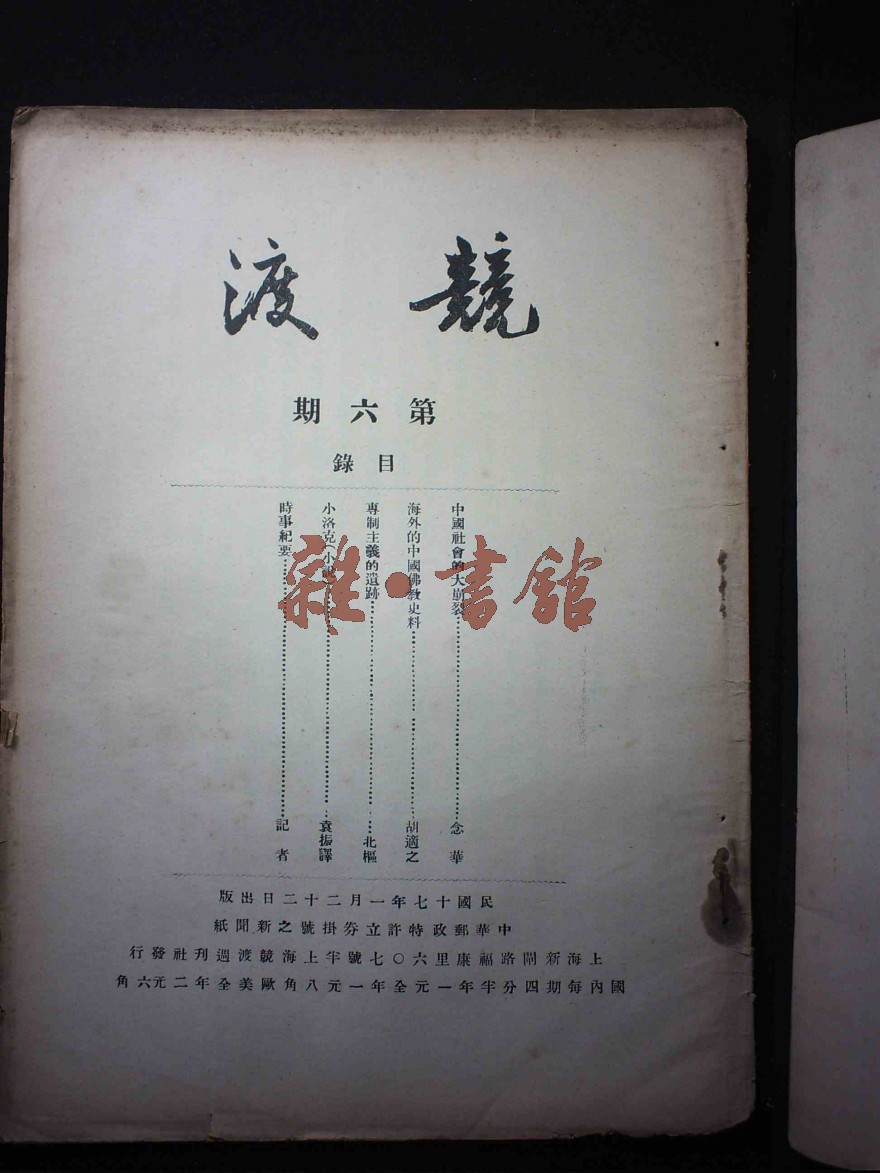 競渡
第六期
目錄
中國社會的大崩裂……念華
海外的中國佛教史料……胡適之
專制主義的遺跡……北樞
小洛克(小說)……袁振譯
時事紀要……記者
民國十七年一月二十二日出版
中華郵政特許立劵掛號之新聞紙
上海新閘路福康里六〇七號半上海競渡週刊社發行
國內每期四分半年一元全年一元八角歐美全年二元六角
雜·書館